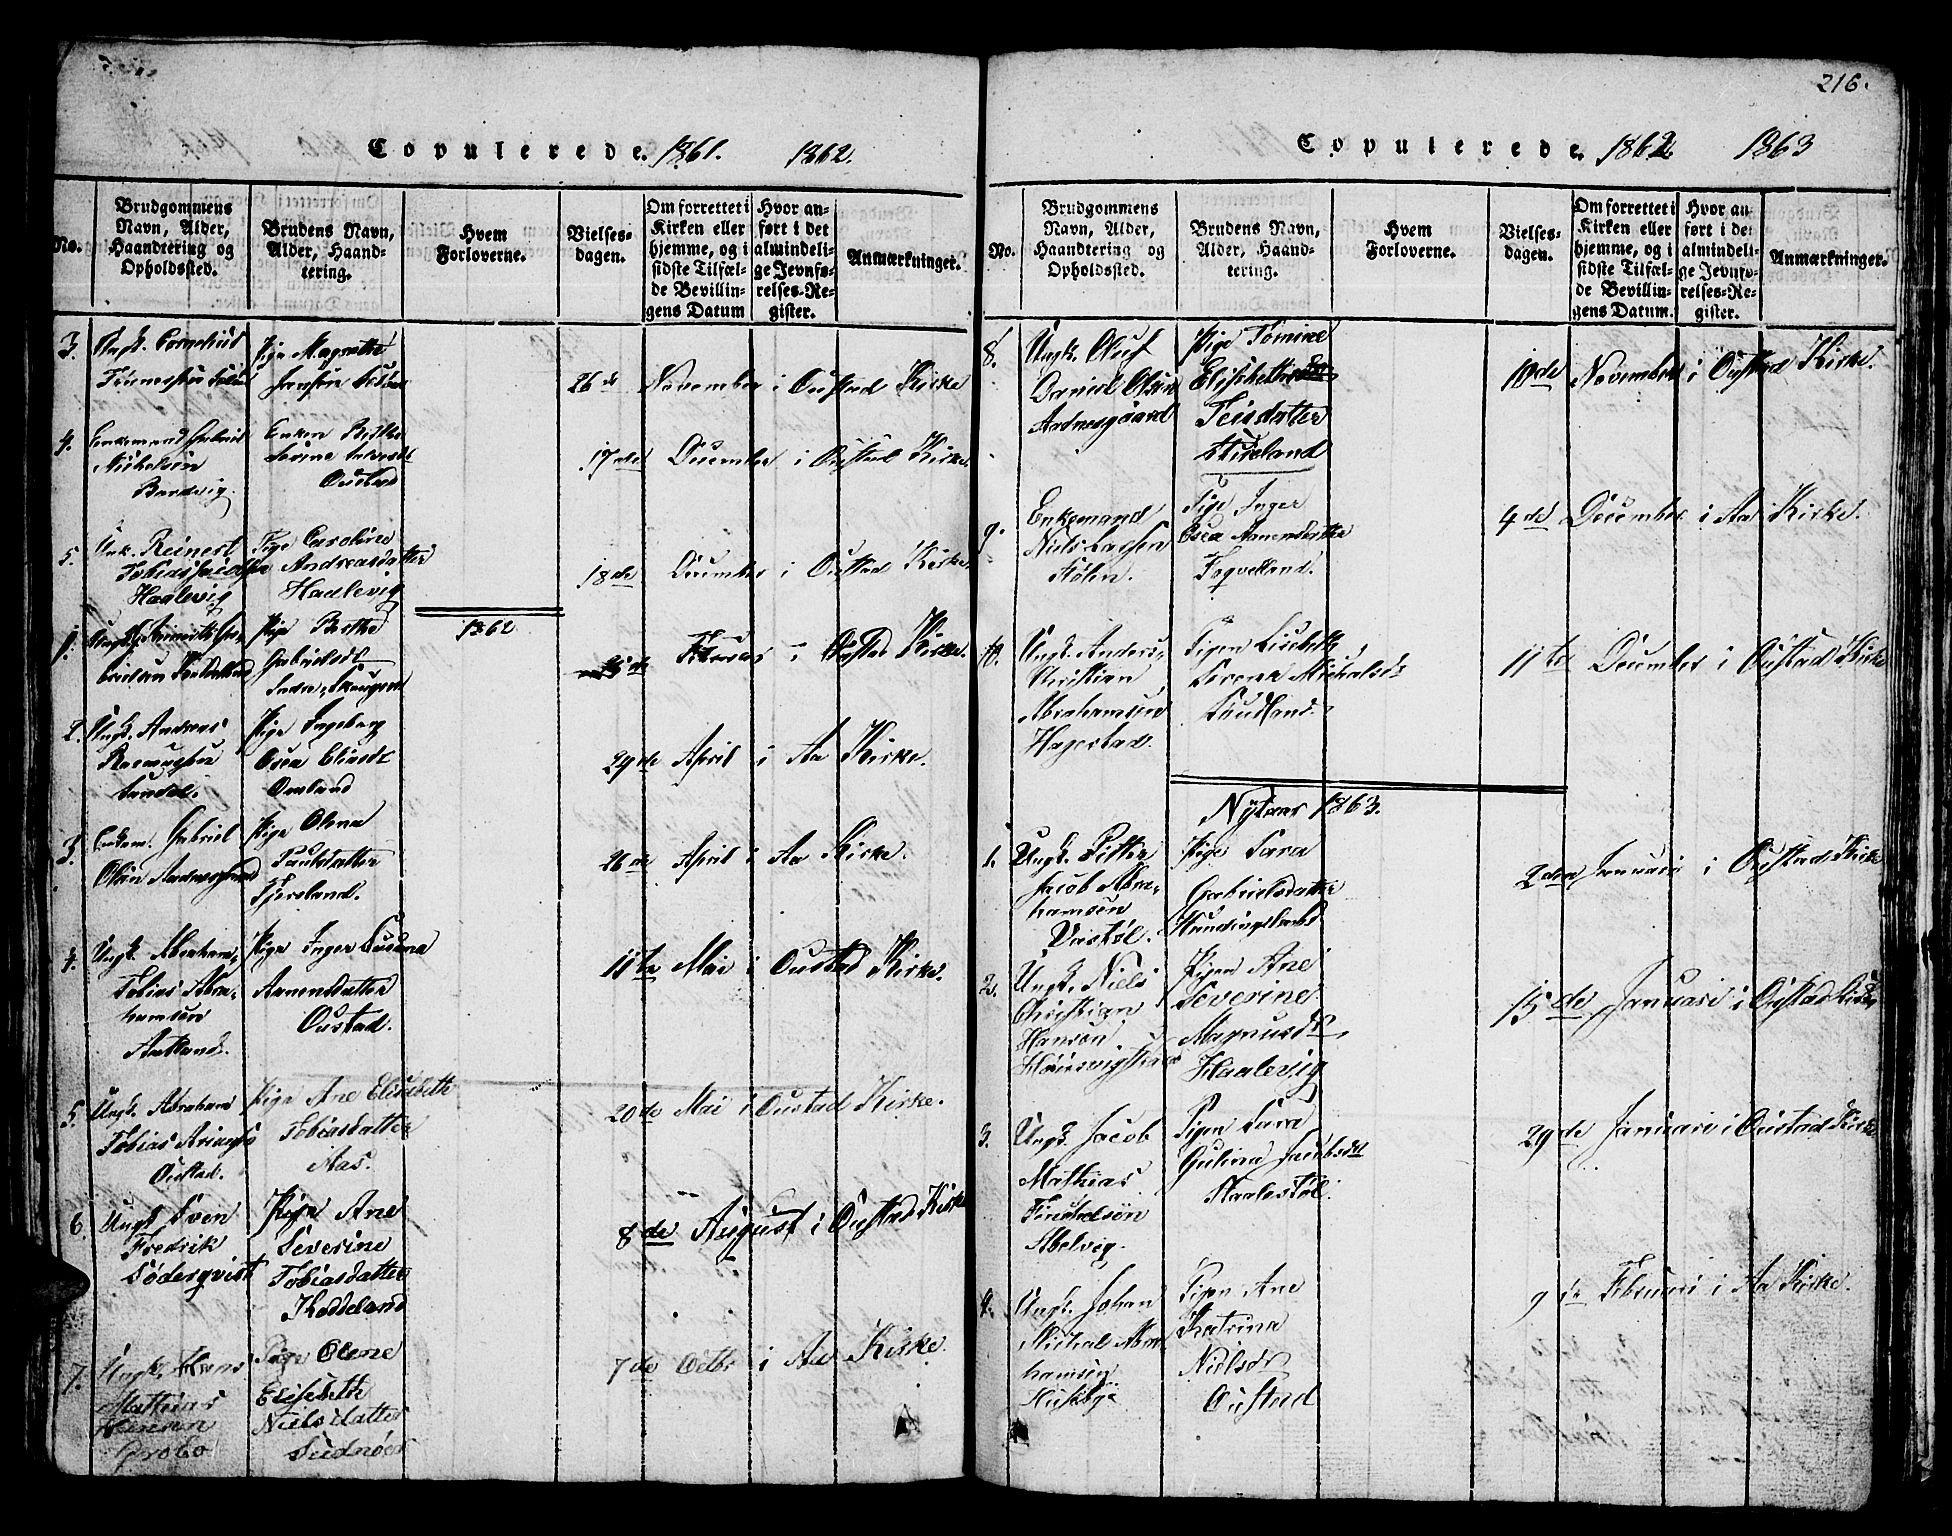 Copulerede. 1861. 1862.
No.
Brudgommens Navn, Alder, Haandtering og Opholdssted.
Brudens Navn, Alder, Haandtering.
Hvem Forloverne.
Vielsesdagen.
Om forrettet i Kirken eller hjemme, og i sidste Tilfælde Bevillingens Datum
Hvor anført i det almindelige Jevnførelses-Register.
Anmærkninger.
3. Ungk. Cornelius
Pige Magrethe
26de November i Oustad Kirke
4. Enkemand Gabriel
Nichelsen
Bardvig.
Enken Berthe
Serine
Oustad
17de December i Oustad Kirke.
5. Unk. Reinert
Tobias Jacobsen
Haalevig
Pige Caroline
Andreasdatter
Haalevig
18de December i Oustad Kirke.
1862
1. Ungk.
Pige Berthe
Gabrielsdt
25de Februar i Oustad Kirke.
2. Ungk. Andreas
Rasmussen
Pige Ingeborg
Osea Eliasdt
Omland
29de April i Aa Kirke.
3. Enkem. Gabriel
Olsen
Pige Olena
Paulsdatter
Tjersland.
26de April i Aa Kirke.
4. Ungk. Abraham
Tobias Abra-
hamsen
Aatland.
Pige Inger Susanna
Aanensdatter
Oustad.
11te Mai i Oustad Kirke.
5. Ungk. Abraham
Tobias
Oustad.
Pige Ane Elisabeth
Tobiasdatter
Aas.
20de Mai i Oustad Kirke.
6. Ungk Sven
Fredrik
Söderqvist
Pige Ane
Severine
Tobiasdatter
Koddeland
8de August i Oustad Kirke
7. Ungk. Hans
Mathias
Hansen
Grobo
Pige Olene
Elisabeth
Nielsdatter
7de Octbr i Aa Kirke.
216.
Copulerede. 1862 1863
No.
Brudgommens Navn, Alder, Haandtering og Opholdssted.
Brudens Navn, Alder, Haandtering.
Hvem Forloverne.
Vielsesdagen.
Om forrettet i Kirken eller hjemme, og i sidste Tilfælde Bevillingens Datum.
Hvor anført i det almindelige Jevnførelses-Register.
Anmærkninger.
8. Ungk. Oluf
Daniel Olsen
Aadnesgaard
Pige Tomine
Elisabeth
Teisdatter
10de November i Oustad Kirke.
9. Enkemand
Niels Larsen
Stölen.
Pige Inger
Osea Aanensdatter
Fogvelland.
4de December i Aa Kirke.
10. Ungk. Anders
Christian
Abrahamsen
Hagestad.
Pigen Lisebeth
Serena Michalsdt
11te December i Oustad Kirke
Nytaar 1863.
1. Ungk. Petter
Jacob Abra-
hamsen
Vastöl.
Pige Sara
Gabrielsdatter
Hundingsland
2den Januari i Oustad Kirke
2. Ungk. Niels
Christian
Hansen
Pigen Ane
Severine
Magnusdt
Haalevig
15de Januari i Oustad Kirke
3. Ungk. Jacob
Mathias
Abelvig.
Pigen Sara
Gulina Jacobsdt
29de Januari i Oustad Kirke
4. Ungk. Johan
Michal Abra-
hamsen
Huseby
Pigen Ane
Katrina
Nielsdt
Oustad
9de Februari i Aa Kirke.